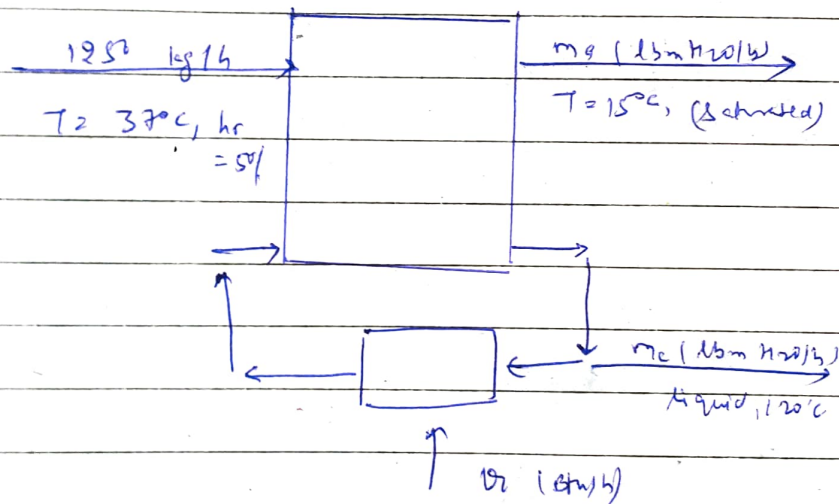 1250 kg/h
T= 37°C, hr
= 50%
ma (lbm H2O/h)
T=15°C, (Saturated)
mc (lbm H2O/h)
liquid, 120°C
(Btu/h)